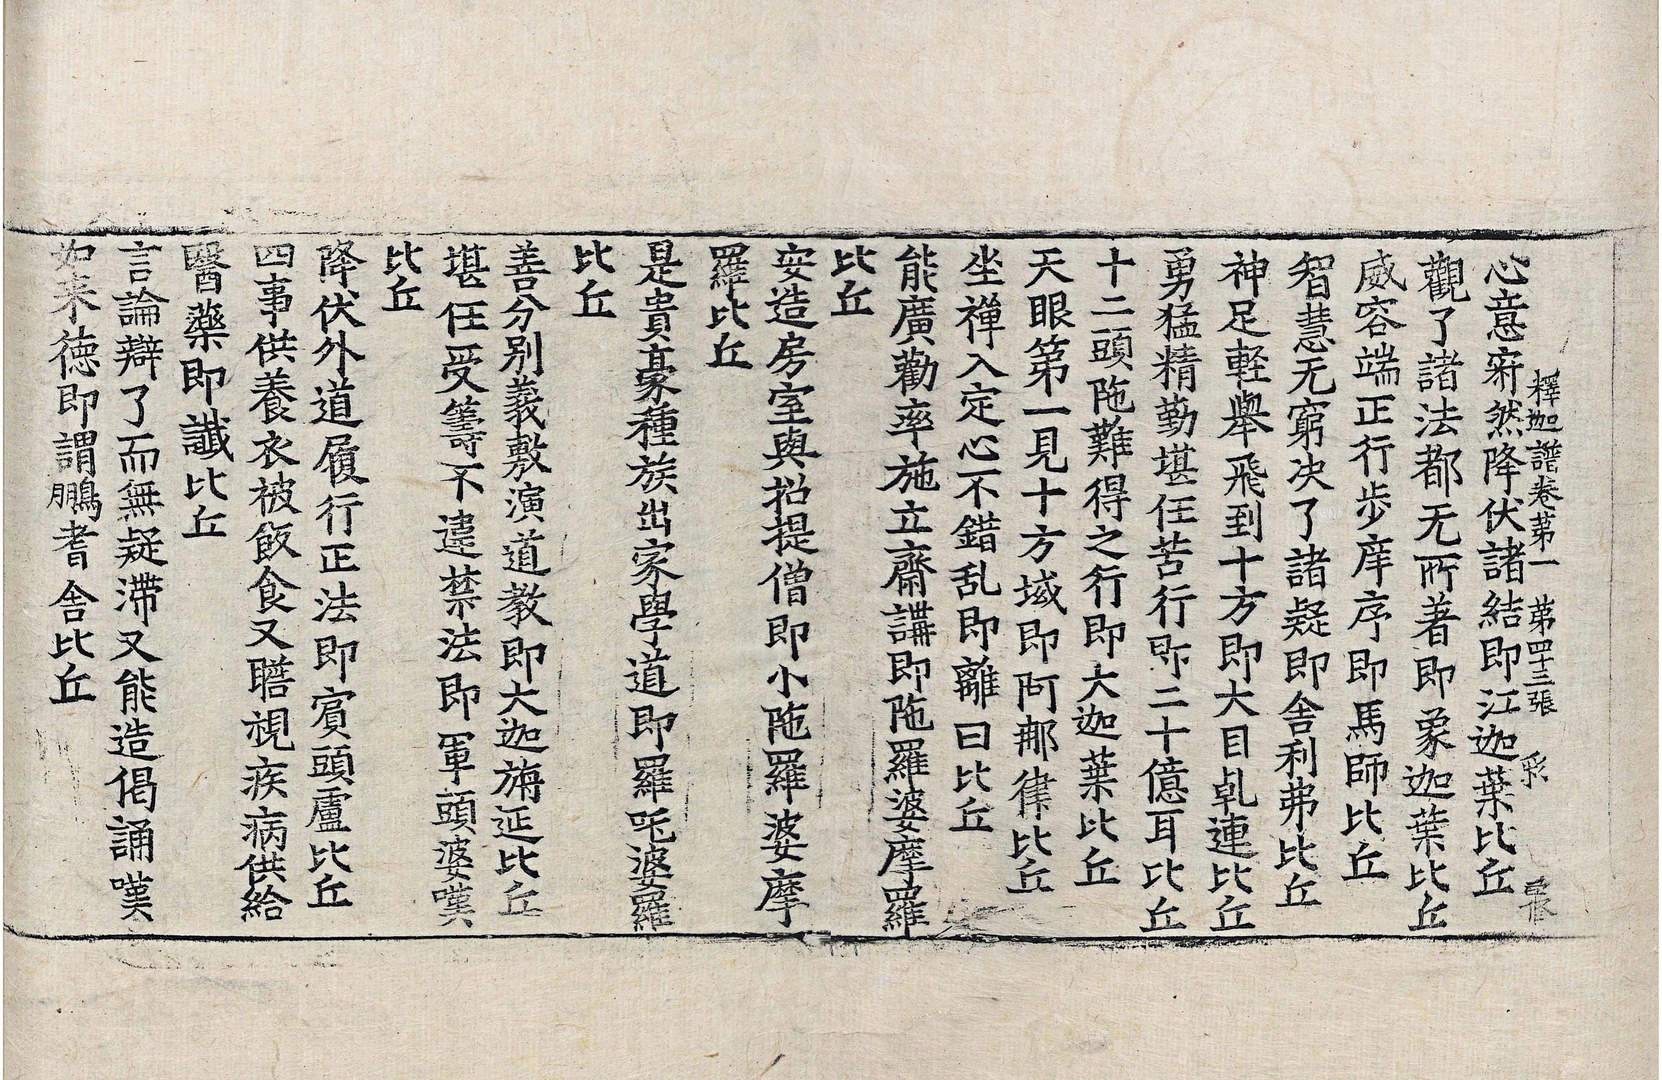 釋迦譜卷第一 第四十三張 彩
心意寂然降伏諸結即江迦葉比丘
觀了諸法都无所著即象迦葉比丘
威容端正行步庠序即馬師比丘
智慧无窮决了諸疑即舍利弗比丘
神足軽舉飛到十方即大目乹連比丘
勇猛精勤堪任苦行即二十億耳比丘
十二頭陁難得之行即大迦葉比丘
天眼第一見十方域即阿那律比丘
坐禪入定心不錯乱即離曰比丘
能廣勸率施立齋講即陁羅婆摩羅
比丘
安造房室與招提僧即小陁羅婆摩
羅比丘
是貴豪種族出家學道即羅吒婆羅
比丘
善分別義敷演道教即大迦旃延比丘
堪任受籌不違禁法即軍頭婆嘆
比丘
降伏外道履行正法即賓頭盧比丘
四事供養衣被飯食又瞻視疾病供給
醫藥即讖比丘
言論辯了而無疑滯又能造偈誦嘆
如来德即謂鵬耆舍比丘